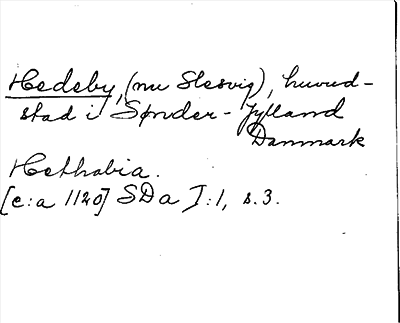 Hedeby, (nu Slesvig), huvud-
stad i Sønder-Jylland
Danmark
Hethabia.
[c:a 1120] SDa I:1, s.3.